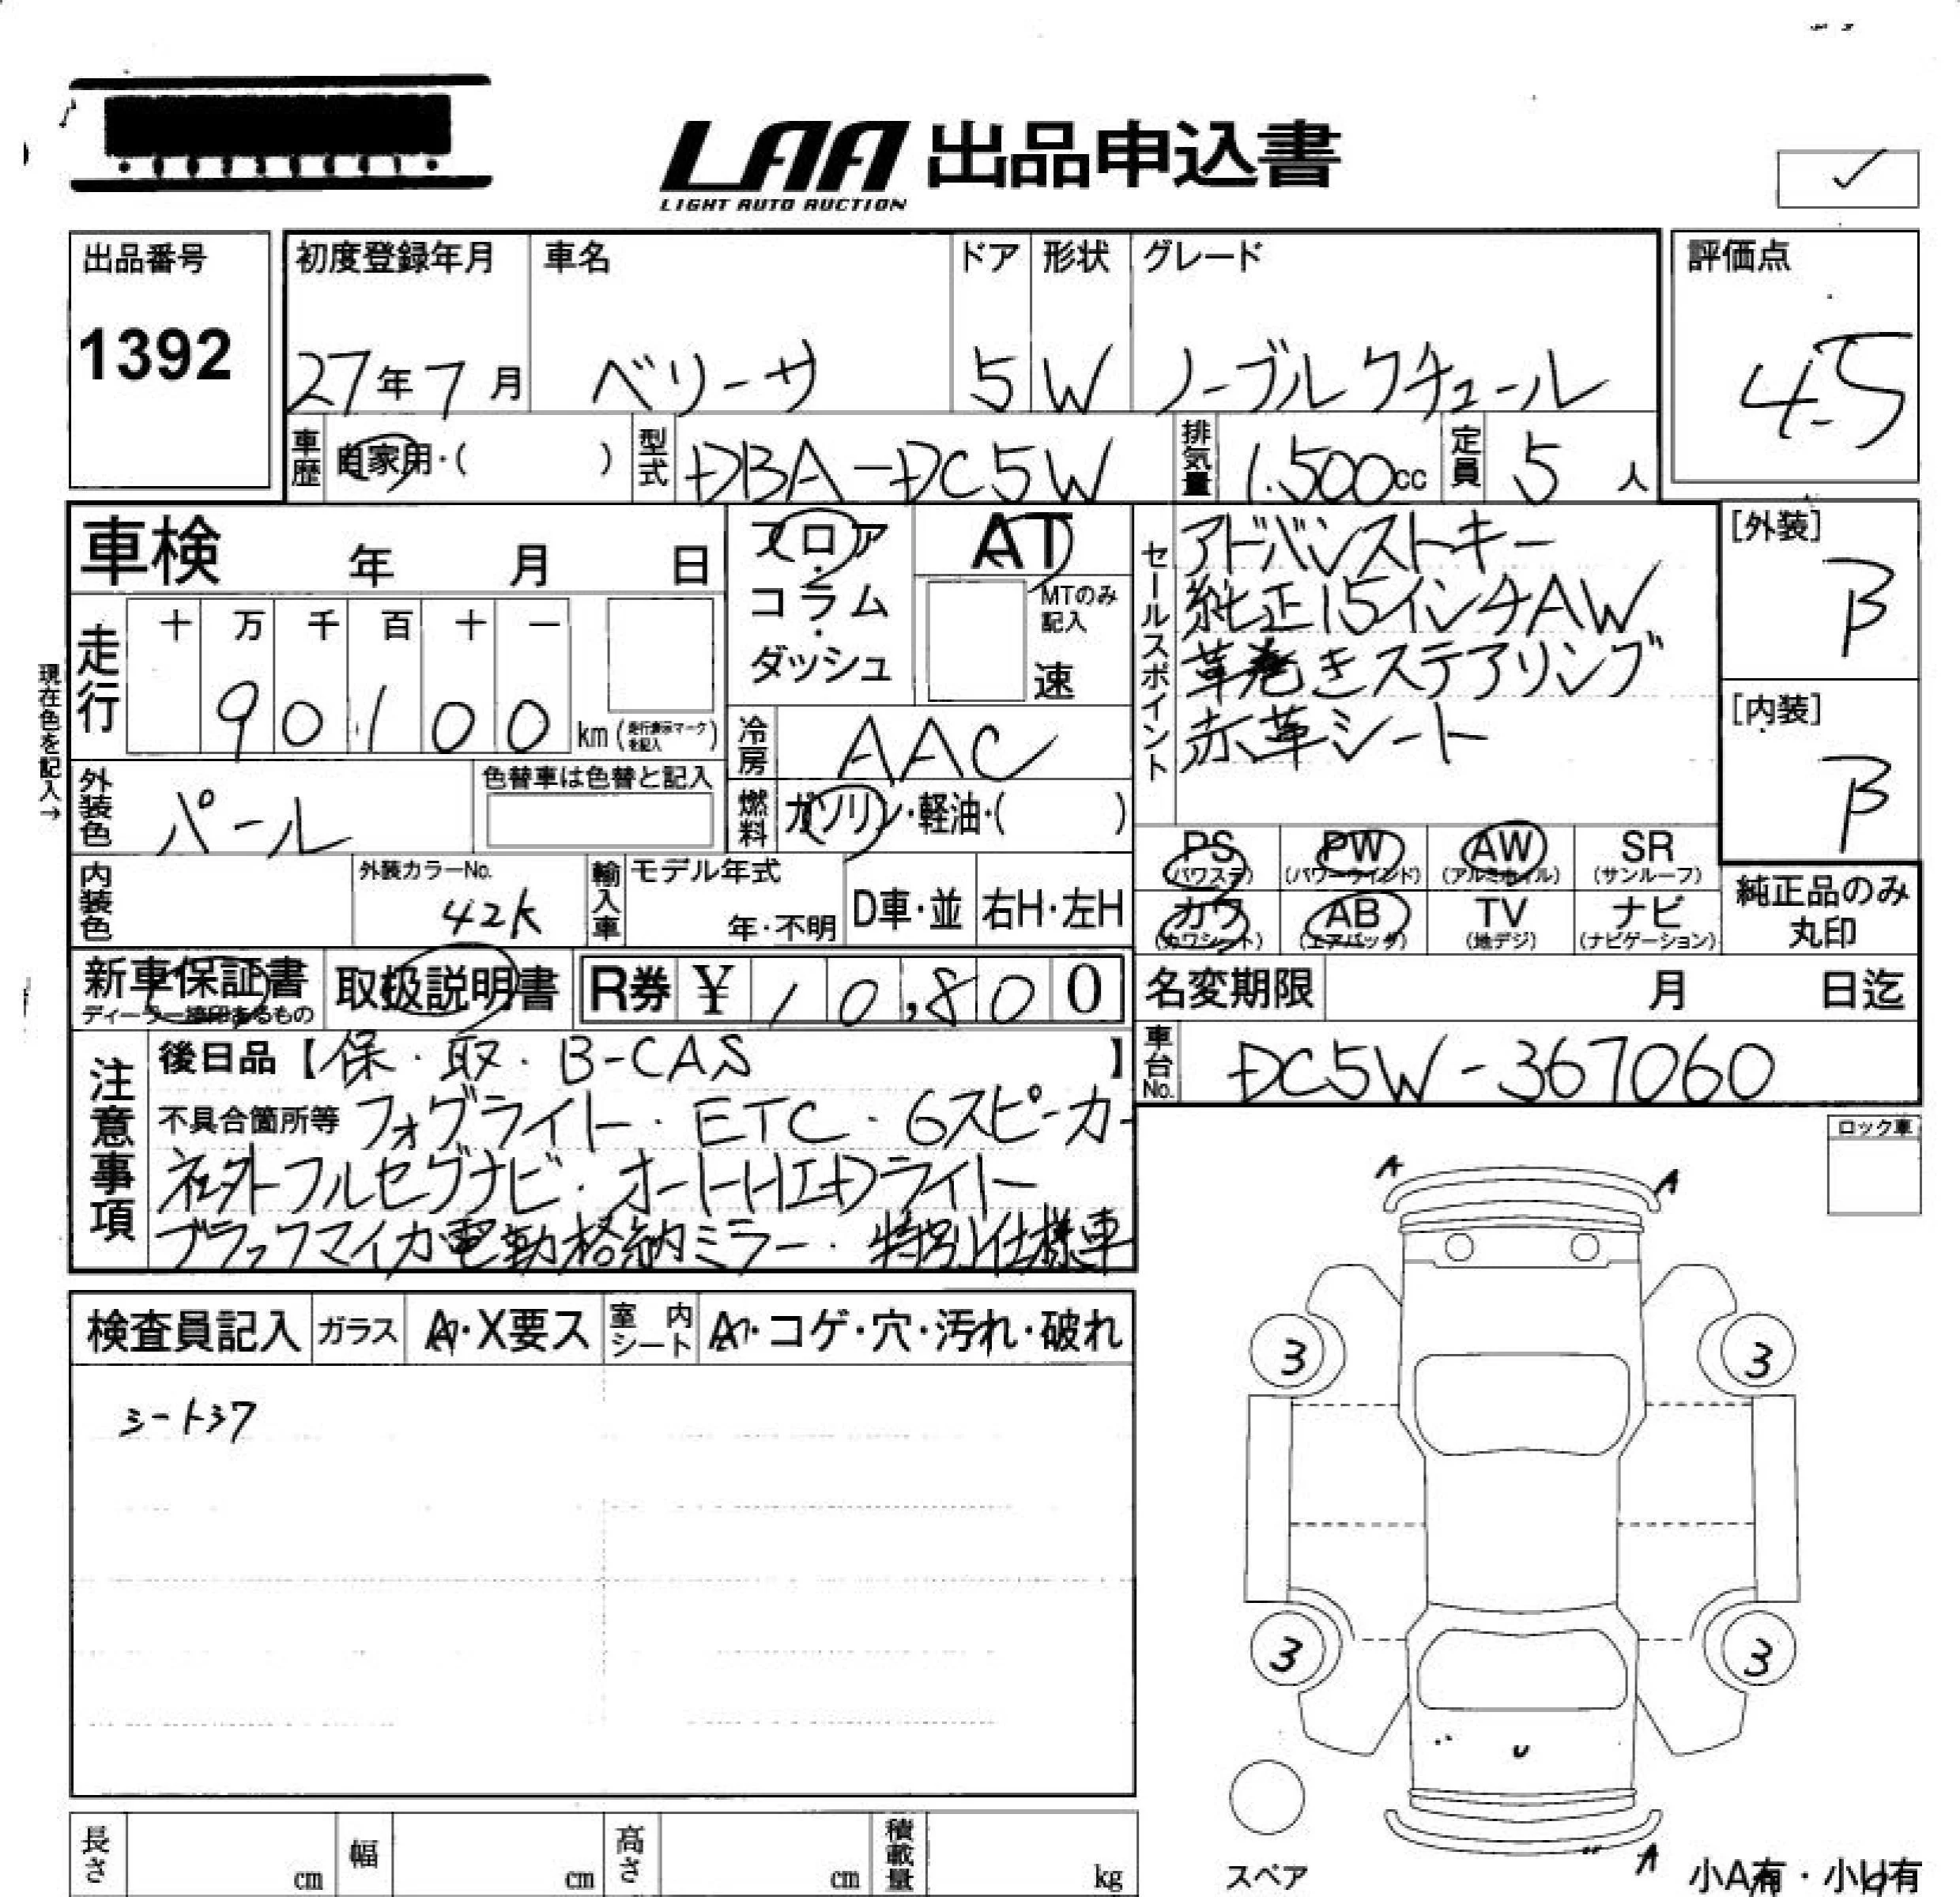 LAA 出品申込書
LIGHT AUTO AUCTION
出品番号
1392
初度登録年月 車名 ドア 形状 グレード
27年7月 ベリーサ 5 W ノーブルクチュール
評価点
4.5
車歴 自家用・( ) 型式 DBA-DC5W 排気量 1.500cc 定員 5人
車検 年 月 日
フロア・コラム・ダッシュ
AT
MTのみ記入
速
セールスポイント
アドバンストキー
純正15インチAW
革巻きステアリング
赤革シート
[外装]
B
[内装]
B
現在色を記入→
走行 十 万 千 百 十 一
90100 km(走行表示マークを記入)
冷房 AAC
外装色 パール 色替車は色替と記入
燃料 ガソリン・軽油・( )
内装色 外装カラーNo. 42K
輸入車 モデル年式 年・不明 D車・並 右H・左H
PS (パワステ) PW (パワーウインド) AW (アルミホイル) SR (サンルーフ)
カワ (カワシート) AB (エアバッグ) TV (地デジ) ナビ (ナビゲーション)
純正品のみ
丸印
新車保証書 取扱説明書 R券 ¥10,800
名変期限 月 日迄
車台No. DC5W-367060
注意事項
後日品【保・取・B-CAS】
不具合箇所等 フォグライト・ETC・6スピーカー
社外フルセグナビ・オートHIDライト
ブラックマイカ電動格納ミラー・特別仕様車
ロック車
検査員記入 ガラス A・X要ス 室内シート A・コゲ・穴・汚れ・破れ
A A
3 3
3 3
U
A
スペア
小A有・小U有
長さ cm 幅 cm 高さ cm 積載量 kg